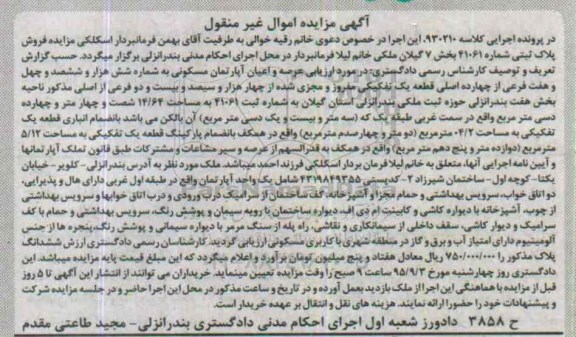 آگهی مزایده اموال غیر منقول
در پرونده اجرایی کلاسه ۹۳۰۲۱۰، این اجرا در خصوص دعوی خانم رقیه خوالی به طرفیت آقای بهمن فرمانبردار اسکلکی مزایده فروش
پلاک ثبتی شماره ۴۱۰۶۱ بخش ۷ گیلان ملکی خانم لیلا فرمانبردار در محل اجرای احکام مدنی بندرانزلی برگزار میگردد. حسب گزارش
تعریف و توصیف کارشناس رسمی دادگستری: در مورد ارزیابی عرصه و اعیان آپارتمان مسکونی به شماره شش هزار و ششصد و چهل
و هفت فرعی از چهارده اصلی قطعه یک تفکیکی مفروز و مجزی شده از چهار هزار و سیصد و بیست و دو فرعی از اصلی مذکور ناحیه
بخش هفت بندرانزلی حوزه ثبت ملکی بندرانزلی استان گیلان به شماره ثبت ۴۱۰۶۱ به مساحت ۶۴/۱۴ شصت و چهار متر و چهارده
دسی متر مربع واقع در سمت غربی طبقه یک که (سه متر و بیست و یک دسی متر مربع) آن بالکن می باشد بانضمام انباری قطعه یک
تفکیکی به مساحت ۰۴/۲ مترمربع (دو متر و چهارصدم مترمربع) واقع در همکف بانضمام پارکینگ قطعه یک تفکیکی به مساحت ۵/۱۲
مترمربع (دوازده متر و پنج دهم متر مربع) واقع در همکف به قدرالسهم از عرصه و سیر مشاعات و مشترکات طبق قانون تملک آپارتمانها
و آیین نامه اجرایی آنها، متعلق به خانم لیلا فرمان بردار اسکلکی فرزند احمد میباشد. ملک مورد نظر به آدرس بندرانزلی - کلویر - خیابان
یکتا - کوچه اول - ساختمان شیرزاد ۲ - کدپستی ۴۳۱۹۸۴۹۳۵۵ شامل یک واحد آپارتمان واقع در طبقه اول غربی دارای هال و پذیرایی،
دو اتاق خواب، سرویس بهداشتی و حمام مجزا و آشپزخانه، کف ساختمان از سرامیک درب ورودی و درب اتاق خوابها و سرویس بهداشتی
از چوب، آشپزخانه با دیواره کاشی و کابینت ام دی اف، دیواره ساختمان با رویه سیمان و پوشش رنگ، سرویس بهداشتی و حمام با کف
سرامیک و دیوار کاشی، سقف داخلی از سیمانکاری و نقاشی، راه پله از سنگ مرمر با دیواره سیمانی و پوشش رنگ، پنجره ها از جنس
آلومینیوم دارای امتیاز آب و برق و گاز در منطقه شهری با کاربری مسکونی ارزیابی گردید. کارشناسان رسمی دادگستری ارزش ششدانگ
پلاک مذکور را ۷۵۰/۰۰۰/۰۰۰ ریال معادل هفتاد و پنج میلیون تومان برآورد و اعلام میگردد که این مبلغ قیمت پایه مزایده میباشد. این
دادگستری روز چهارشنبه مورخ ۹۵/۹/۳ ساعت ۹ صبح را وقت مزایده تعیین مینماید. خریداران می توانند از انتشار این آگهی تا ۵ روز
قبل از مزایده با هماهنگی این اجرا از ملک بازدید بعمل آورده و در تاریخ و ساعت مذکور در محل این اجرا حاضر و در جلسه مزایده شرکت
و پیشنهادات خود را حضورا ارائه نمایند. هزینه های نقل و انتقال بر عهده خریدار است.
ح ۳۸۵۸ دادورز شعبه اول اجرای احکام مدنی دادگستری بندرانزلی - مجید طاعتی مقدم